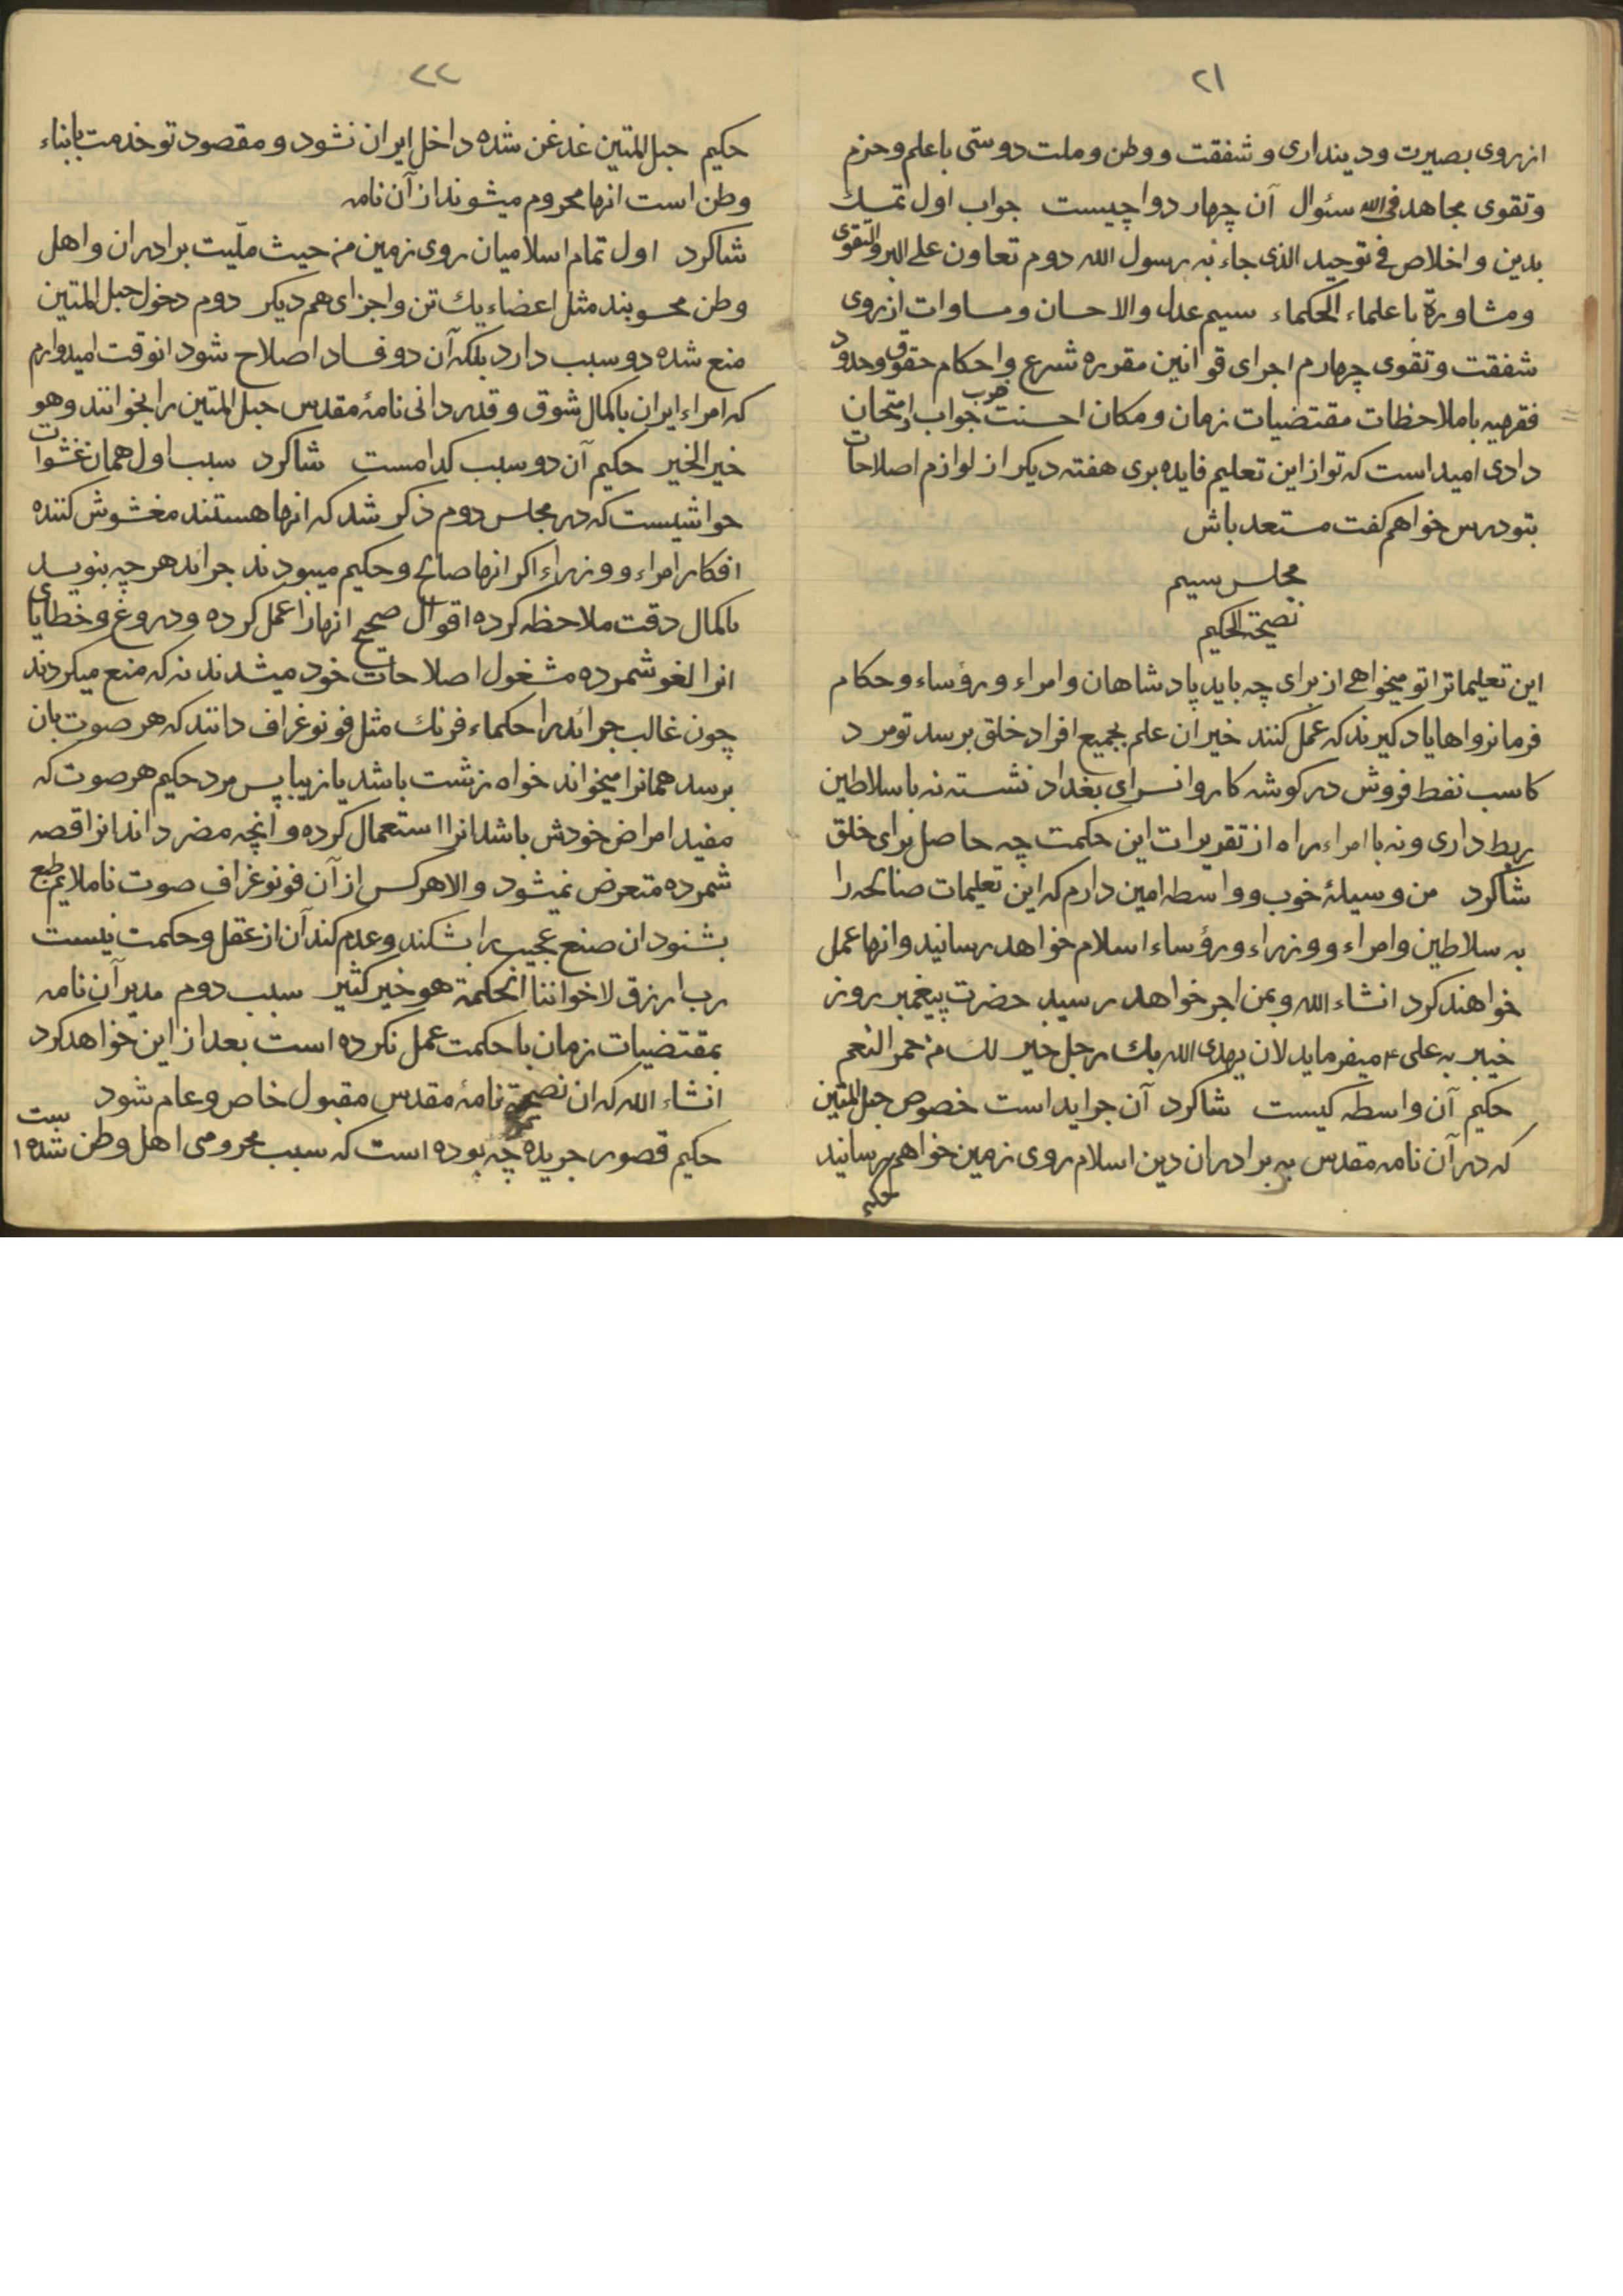 ۲۱
از روی بصیرت و دینداری و شفقت و وطن و ملت دوستی با علم و حزم
و تقوی مجاهد فی الله سئوال آن چهار دوا چیست جواب اول تمسك
بدین و اخلاص فی توحید الذی جاء به رسول الله دوم تعاون علی البر والتقوی
و مشاورة با علماء الحکماء سیم عدل والاحسان و مساوات از روی
شفقت و تقوی چهارم اجرای قوانین مقرره شرع و احکام حقوق وحدود
فقرهیه با ملاحظات مقتضیات زمان و مکان احسنت خوب جواب امتحان
دادی امید است که تو از این تعلیم فایده بری هفته دیکر از لوازم اصلاحات
بتو درس خواهم کفت مستعد باش
مجلس سیم
نصیحة الحکیم
این تعلیماترا تو میخواهی از برای چه باید پادشاهان و امراء و رؤساء و حکام
فرمانرواها یاد کیرند که عمل کنند خیر ان علم بجمیع افراد خلق برسد تو مرد
کاسب نفط فروش در کوشه کاروانسرای بغداد نشسته نه با سلاطین
ربط داری و نه با امراء راه از تقریرات این حکمت چه حاصل برای خلق
شاکرد من وسیلۀ خوب و واسطه امین دارم که این تعلیمات صالحه را
به سلاطین و امراء و وزراء و رؤساء اسلام خواهد رسانید و انها عمل
خواهند کرد انشاء الله و بمن اجر خواهد رسید حضرت پیغمبر روز
خیبر به علی ۴ میفرماید لان یهدی الله بك رجل خیر لك من حمر النعم
حکیم آن واسطه کیست شاکرد آن جراید است خصوص حبل المتین
که در آن نامه مقدس به برادران دین اسلام روی زمین خواهم رسانید
حکیم
۲۲
حکیم حبل المتین غدغن شده داخل ایران نشود و مقصود تو خدمت بابناء
وطن است انها محروم میشوند از آن نامه
شاکرد اول تمام اسلامیان روی زمین من حیث ملّیت برادران و اهل
وطن محسوبند مثل اعضاء یك تن و اجزای هم دیکر دوم دخول حبل المتین
منع شده دو سبب دارد بلکه آن دو فساد اصلاح شود انوقت امیدوارم
که امراء ایران باکمال شوق و قدردانی نامۀ مقدس حبل المتین را بخوانند و هو
خیر الخیر حکیم آن دو سبب کدامست شاکرد سبب اول همان غشوات
حواشیست که در مجلس دوم ذکر شد که انها هستند مغشوش کننده
افکار امراء و وزراء اکر انها صالح و حکیم میبودند جراند هر چه بنویسد
باکمال دقت ملاحظه کرده اقوال صحیح انهارا عمل کرده و دروغ و خطایای
انرا لغو شمرده مشغول اصلاحات خود میشدند نه که منع میکردند
چون غالب جرائد را حکماء فرنك مثل فونوغراف دانند که هر صوت بان
برسد همانرا میخواند خواه زشت باشد یا زیبا پس مرد حکیم هر صوت که
مفید امراض خودش باشد انرا استعمال کرده و انچه مضر داند انرا قصه
شمرده متعرض نمیشود و الا هر کس از آن فونوغراف صوت ناملایم طبع
بشنود ان صنع عجیب را بشکند و عدم کند آن از عقل و حکمت نیست
رب ارزق لاخواننا الحکمة هو خیر کثیر سبب دوم مدیر آن نامه
بمقتضیات زمان با حکمت عمل نکرده است بعد از این خواهد کرد
انشاء الله که ان نامۀ مقدس مقبول خاص و عام شود
حکیم قصور جریده چه بوده است که سبب محرومی اهل وطن شده است